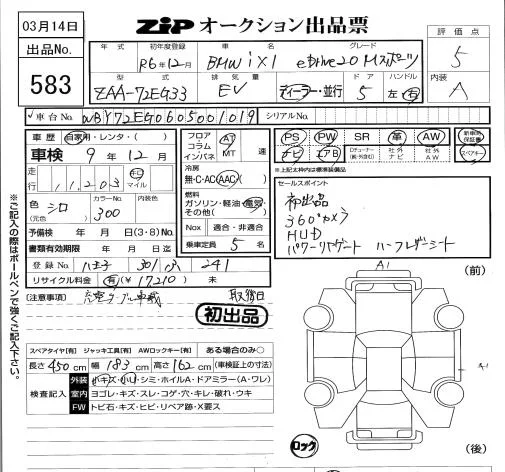 03月14日
ZIP オークション出品票
評価点
5
出品No.
583
年式 初年度登録 車名 グレード
R6年12月 BMW iX1 eDrive20 Mスポーツ
内装
A
型式 排気量 ドア ハンドル
ZAA-72EG33 EV ディーラー・並行 5 左・右
車台No. WBY72EG0605001019 シリアルNo.
車歴 自家用・レンタ・( )
車検 9年12月
走行 11,203 キロ マイル
色(元色) シロ カラーNo. 300 内装色
予備検 年 月 日(3・8)No.
書類有効期限 年 月 日迄
登録No. 八王子 301 241
リサイクル料金 有(¥17210) 未
フロア コラム インパネ AT MT 速
冷房
無・C・AC・AAC( )
燃料
ガソリン・軽油・電気 その他( )
Nox 適合・非適合
乗車定員 5 名
PS PW SR 革 AW 新車時保証書
ナビ エアB 社外ナビ 社外AW スペアキー
※上記太枠内は標準装備品
セールスポイント
初出品
360°カメラ
HUD
パワーリヤゲート ハーフレザーシート
(注意事項)
初出品
スペアタイヤ[有] ジャッキ工具[有] AWロックキー[有] ある場合のみ〇
長さ450cm 幅183cm 高さ162cm (車検証上の寸法)
検査記入
外装 小キズ・小凹・シミ・ホイルA・ドアミラー(A・ワレ)
室内 ヨゴレ・キズ・スレ・コゲ・穴・キレ・破れ・ウキ
FW トビ石・キズ・ヒビ・リペア跡・X要ス
A1
(前)
A1
ロック
(後)
※ご記入の際はボールペンで強くご記入下さい。